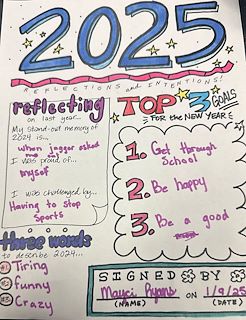 2025
REFLECTIONS and INTENTIONS!
reflecting
on last year...
My stand-out memory of
2024 is...
When jagger asked
me out
I was proud of...
myself
I was challenged by...
Having to stop
Sports
three words
to describe 2024...
#1 Tiring
#2 Funny
#3 Crazy
TOP 3 GOALS
FOR the NEW YEAR
1. Get through
School
2. Be happy
3. Be a good
SIGNED BY
on 1/9/25
(NAME) (DATE)